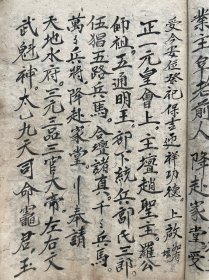 業王皇老前人降赴家堂受
愛今安位登祀保主迎祥功德上啟
正一元皇會上主壇趙聖主羅
師祖五通明王部下統兵部氏一郎
伍猖五路兵馬合壇諸真千千兵馬
萬萬兵將降赴家堂奉請
天地水府三元三品三官大帝左右天
武魁神太乙九天司命竈君王